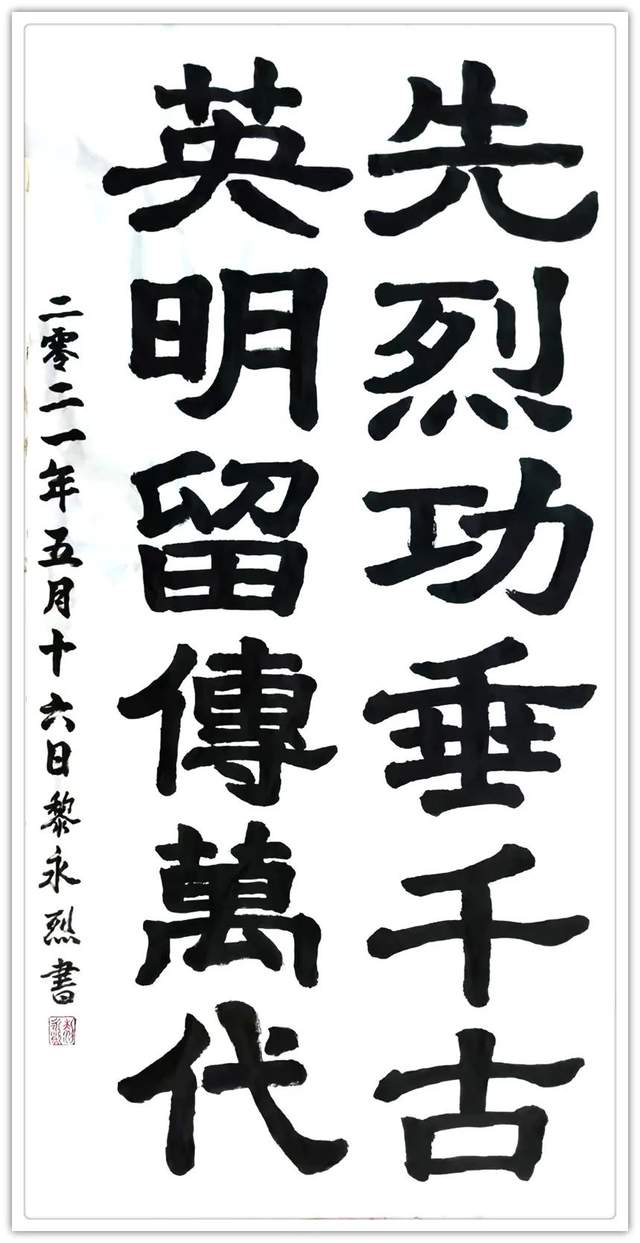 先烈功垂千古
英明留傳萬代
二零二一年五月十六日黎永烈書